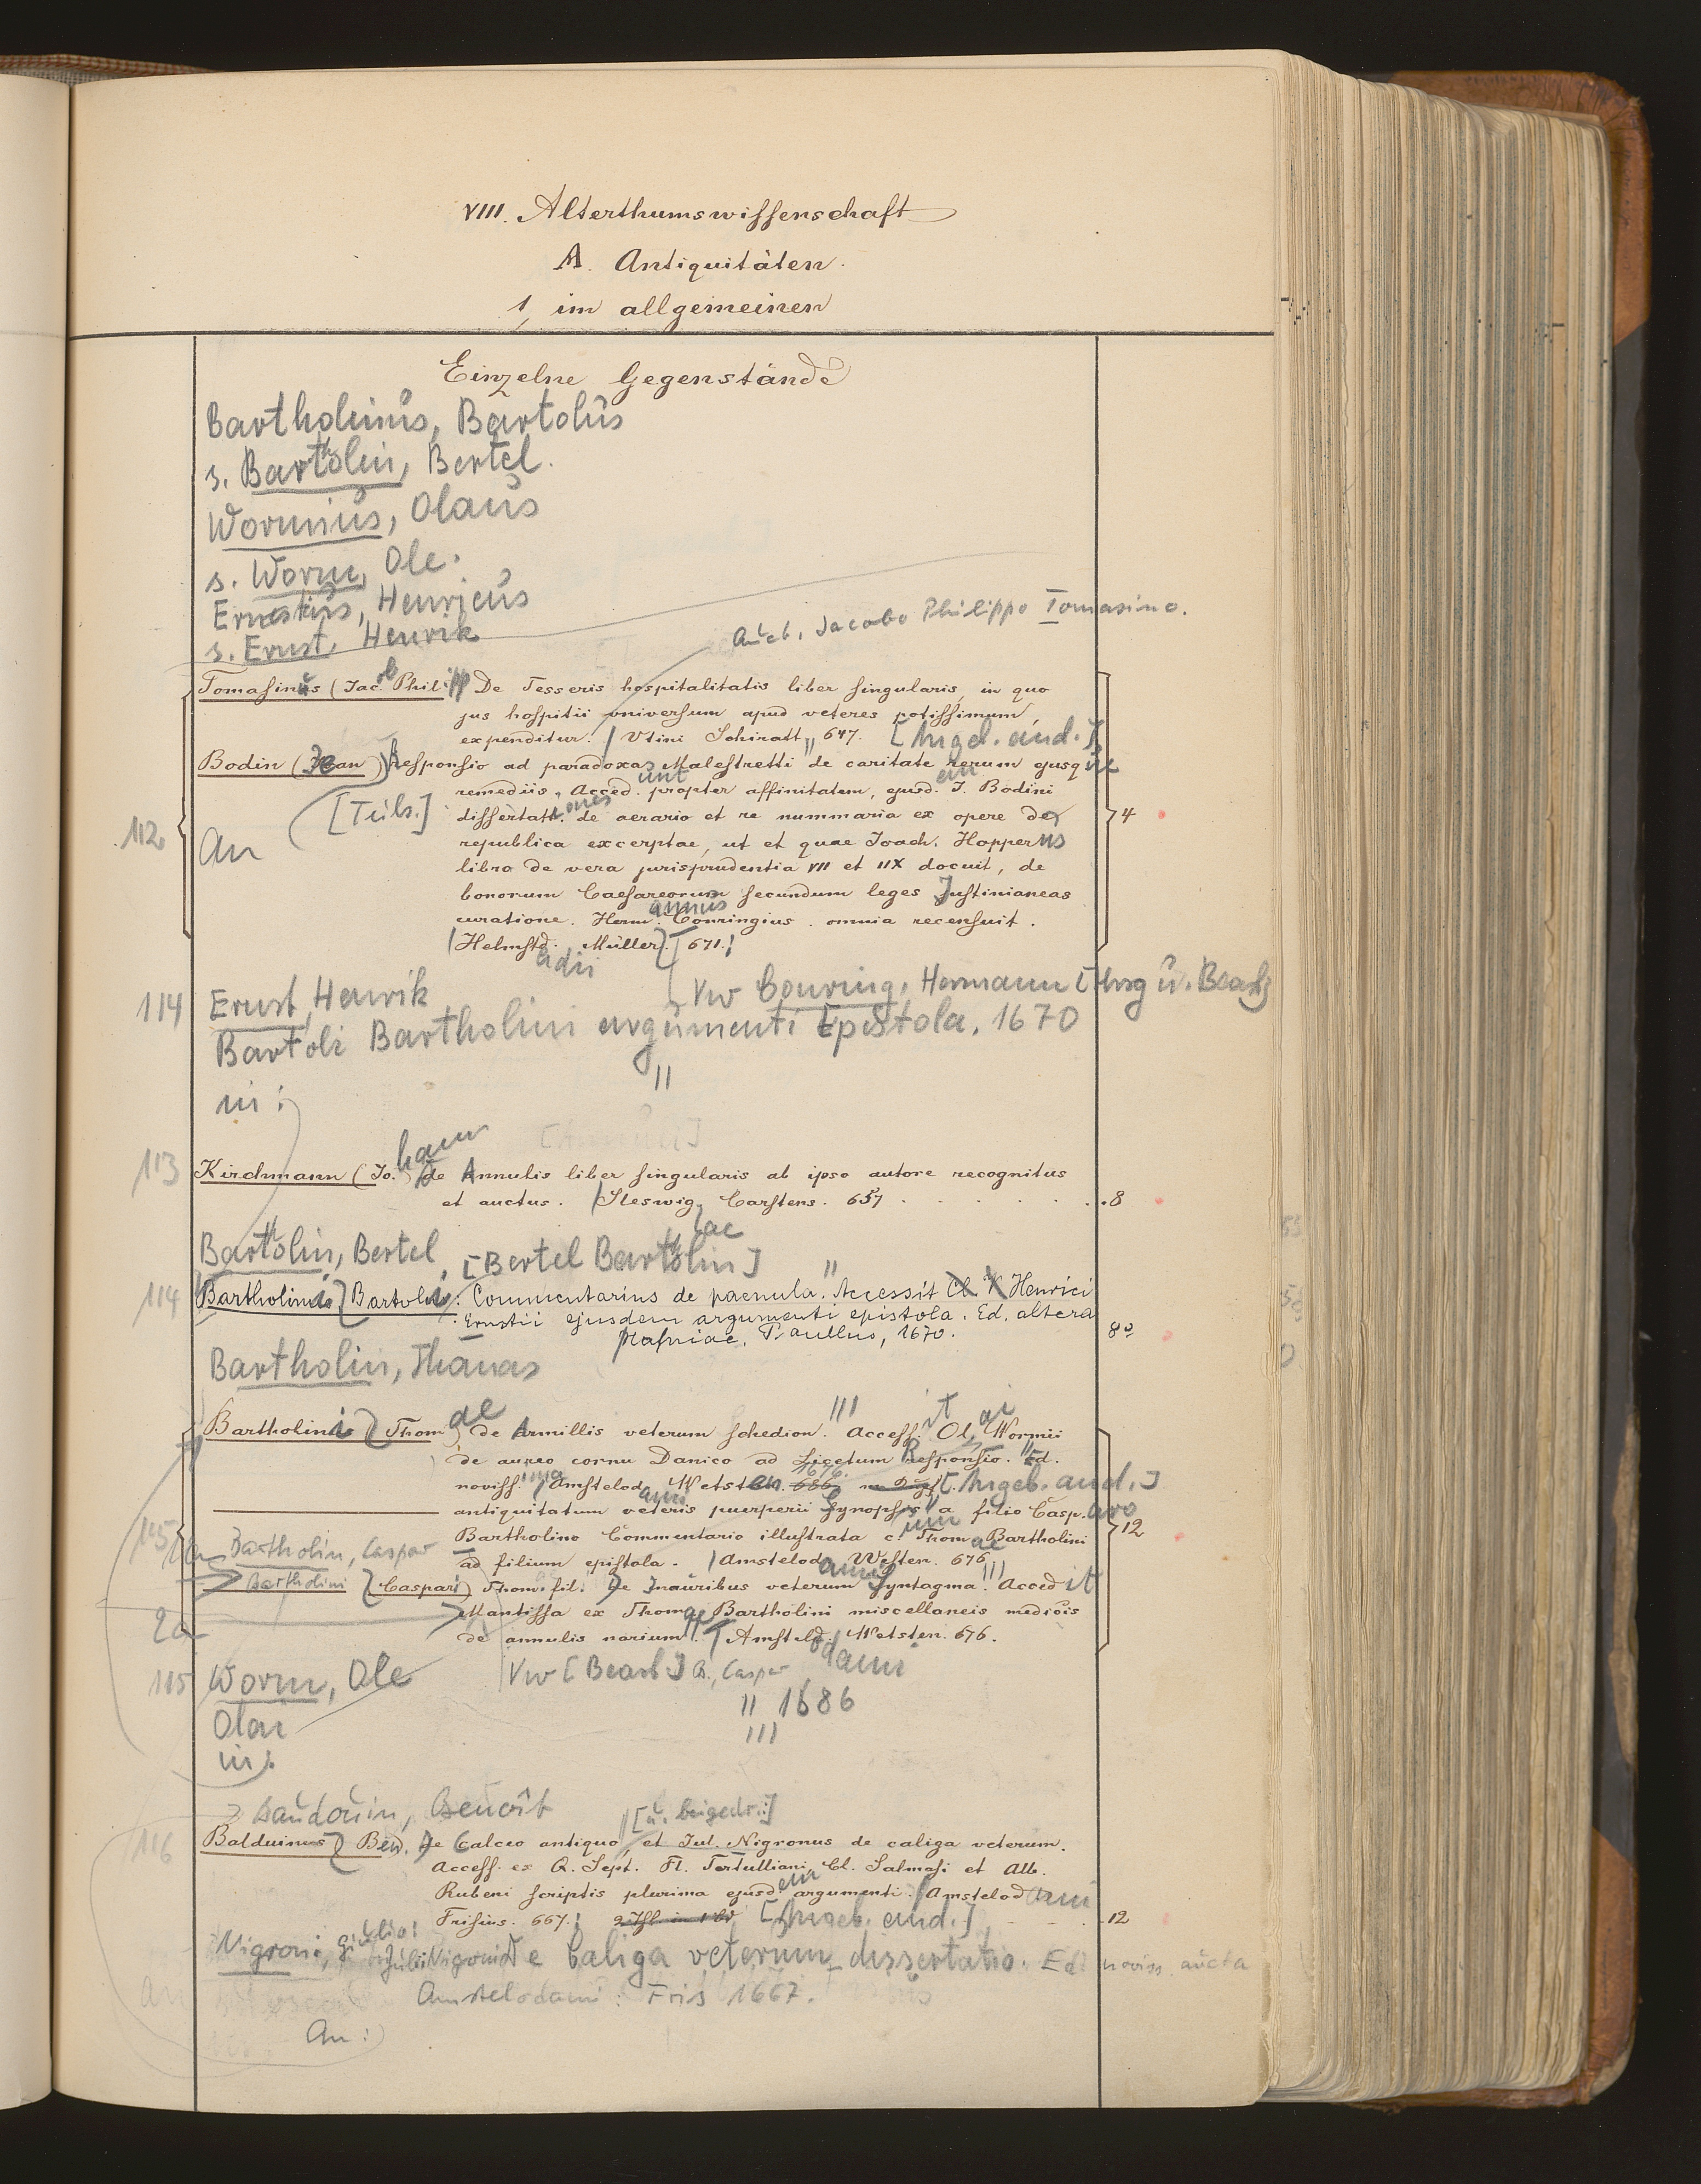 VIII. Alterthumswissenschaft
A. Antiquitäten.
1, im allgemeinen
Einzelne Gegenstände
Bartholinus, Bartolus
s. Bartholin, Bertel.
Wormius, Olaus
s. Worm, Ole.
Ernstius, Henricus
s. Ernst, Henrik
Auct. Jacobo Philippo Tomasino.
Tomasinus (Jacob Philipp De Tesseris hospitalitatis liber singularis, in quo
jus hospitii universum apud veteres potissimum,
expenditur. / Utini Schiratt 647. [Angeb. and.]
Bodin (Jean) Responsio ad paradoxa Malestretti de caritate rerum ejusque
remediis, Accedunt propter affinitatem, ejusdem J. Bodini
[Teils.] dissertationes de aerario et re nummaria ex opere de
112 An republica excerptae, ut et quae Joach. Hopperus 4
libro de vera jurisprudentia VII et IIX docuit, de
bonorum Caesareorum secundum leges Justinianeas
curatione. Hermannus Conringius omnia recensuit.
(Helmstadii Müller) 671.
Vw Conring, Hermann [Hrsg u. Bearb]
114 Ernst, Henrik
Bartoli Bartholini argumenti Epistola. 1670
in:
113 Kirchmann (Johann) de Annulis liber singularis ab ipso autore recognitus
et auctus. / Sleswigae Carstens. 657 8
Bartholin, Bertel, [Bertel Bartholin]
114 Bartholini Bartoli: Commentarius de paenula. Accessit Cl. V. Henrici
Ernstii ejusdem argumenti epistola. Ed. altera
Hafniae, Paullus, 1670. 8°
Bartholin, Thomas
Bartholini Thomae de Armillis veterum schedion. Accessit Olai Wormii
de aureo cornu Danico ad Licetum Responsio. Ed.
novissima / Amstelodami Wetsten. 1676. [Angeb. and.]
antiquitatum veteris puerperii Synopsis a filio Casparo
115 Bartholino Commentario illustrata cum Thomae Bartholini 12
1a Bartholin, Caspar ad filium epistola. / Amstelodami Westen. 676
Bartholini Caspari Thom. fil. De Inauribus veterum Syntagma. Accedit
2a Mantissa ex Thomae Bartholini miscellaneis medicis
de annulis narium. / Amstelodami Wetsten. 676.
115 Worm, Ole Vw [Bearb.] B., Caspar
Olai 1686
in:
Baudouin, Benoît [u. beigedr.:]
116 Balduinus Ben. De Calceo antiquo, et Jul. Nigronus de caliga veterum.
Access. ex Q. Sept. Fl. Tertulliani, Cl. Salmasi et Alb.
Rubeni scriptis plurima ejusdem argumenti. / Amstelodami
Frisius. 667. 2 Thl in 1 Bd [Angeb. and.] 12
Nigroni, Giulio: Julii Nigroni De Caliga veterum dissertatio. Ed. noviss. aucta
Amstelodami: Fris 1667.
An: